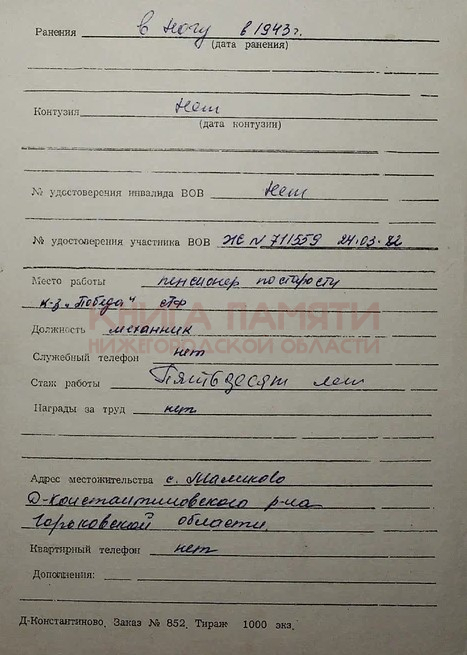 Ранения в ногу в 1943 г.
(дата ранения)
Контузия Нет
(дата контузии)
№ удостоверения инвалида ВОВ Нет
№ удостоверения участника ВОВ ЖЕ № 711559 24.03.82
Место работы пенсионер по старости
к-з "Победа"
КНИГА ПАМЯТИ
Должность механник
НИЖЕГОРОДСКОЙ ОБЛАСТИ
Служебный телефон нет
Стаж работы Пятьдесят лет
Награды за труд нет
Адрес местожительства с.
Д-Константиновского р-на
Горьковской области.
Квартирный телефон нет
Дополнения:
Д-Константиново. Заказ № 852. Тираж 1000 экз.